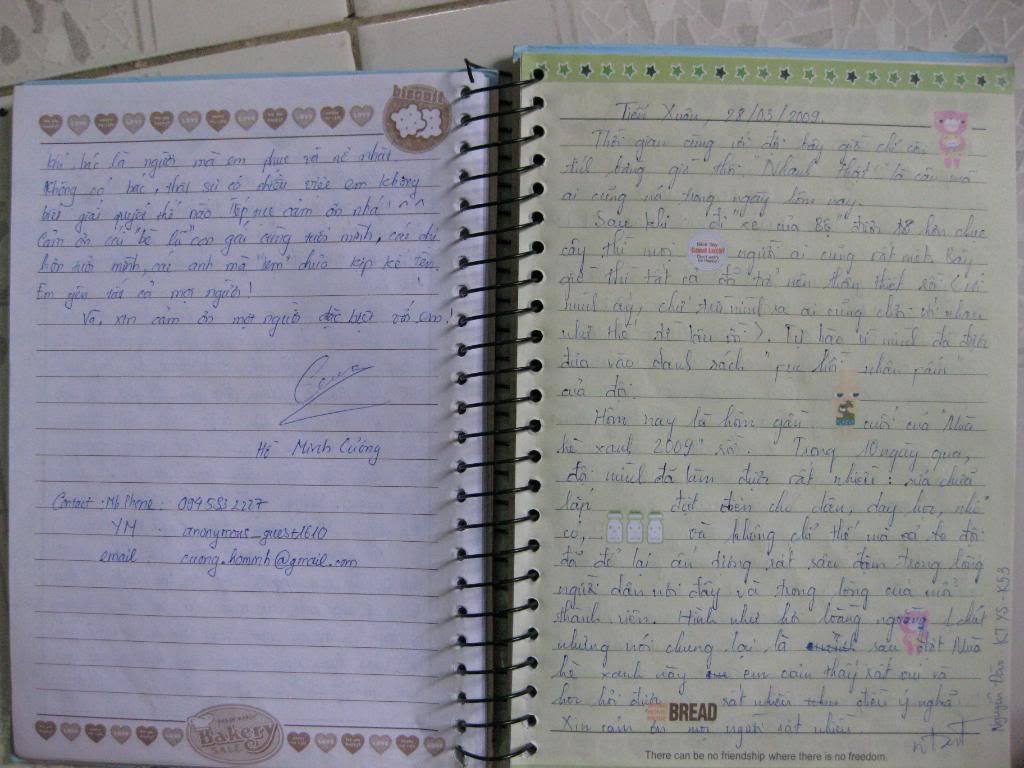 biscuit
khi, bác là người mà em phục và nể nhất.
Không có bác, thật sự có nhiều việc em không
biết giải quyết thế nào cảm ơn nhá! ^^
Cảm ơn cái "bè lũ" con gái cùng tuổi mình, các chị
hơn tuổi mình, các anh mà "em" chưa kịp kể tên.
Em yêu tất cả mọi người!
Và, xin cảm ơn một người đặc biệt với em!
Hồ Minh Cương
Contact : Mb Phone : 094.5532227
YM : anonymous_guest1610
email : cuong.hominh@gmail.com
Bakery
SALE
Tiến Xuân, 28/03/2009.
Thời gian cùng với đội bây giờ chỉ còn
tính bằng giờ thôi. Nhanh thật! là câu mà
ai cũng nói trong ngày hôm nay.
Sau khi đi xe của Bộ điện 18 hơn chục
cây thì mọi người ai cũng rất mệt. Bây
giờ thì tất cả đã trở nên thân thiết rồi (
mình ấy, chứ ai cũng chơi với nhau
như thế từ lâu rồi). Tự hào vì mình đã được
đưa vào danh sách " nhân phẩm"
của đội.
Hôm nay là hôm gần cuối của "Mùa
hè xanh 2009" rồi. Trong 10 ngày qua,
đội mình đã làm được rất nhiều: sửa chữa
lắp đặt điện cho dân, dạy học, nhổ
cỏ,... và không chỉ thế mà cả tổ đội
đã để lại ấn tượng rất sâu đậm trong lòng
người dân nơi đây và trong lòng của mỗi
thành viên. Hình như hơi loằng ngoằng 1 chút
nhưng nói chung lại là sau đợt Mùa
hè xanh này em cảm thấy rất vui và
học hỏi được rất nhiều điều ý nghĩa.
Xin cảm ơn mọi người rất nhiều.
BREAD
There can be no friendship where there is no freedom.
K53